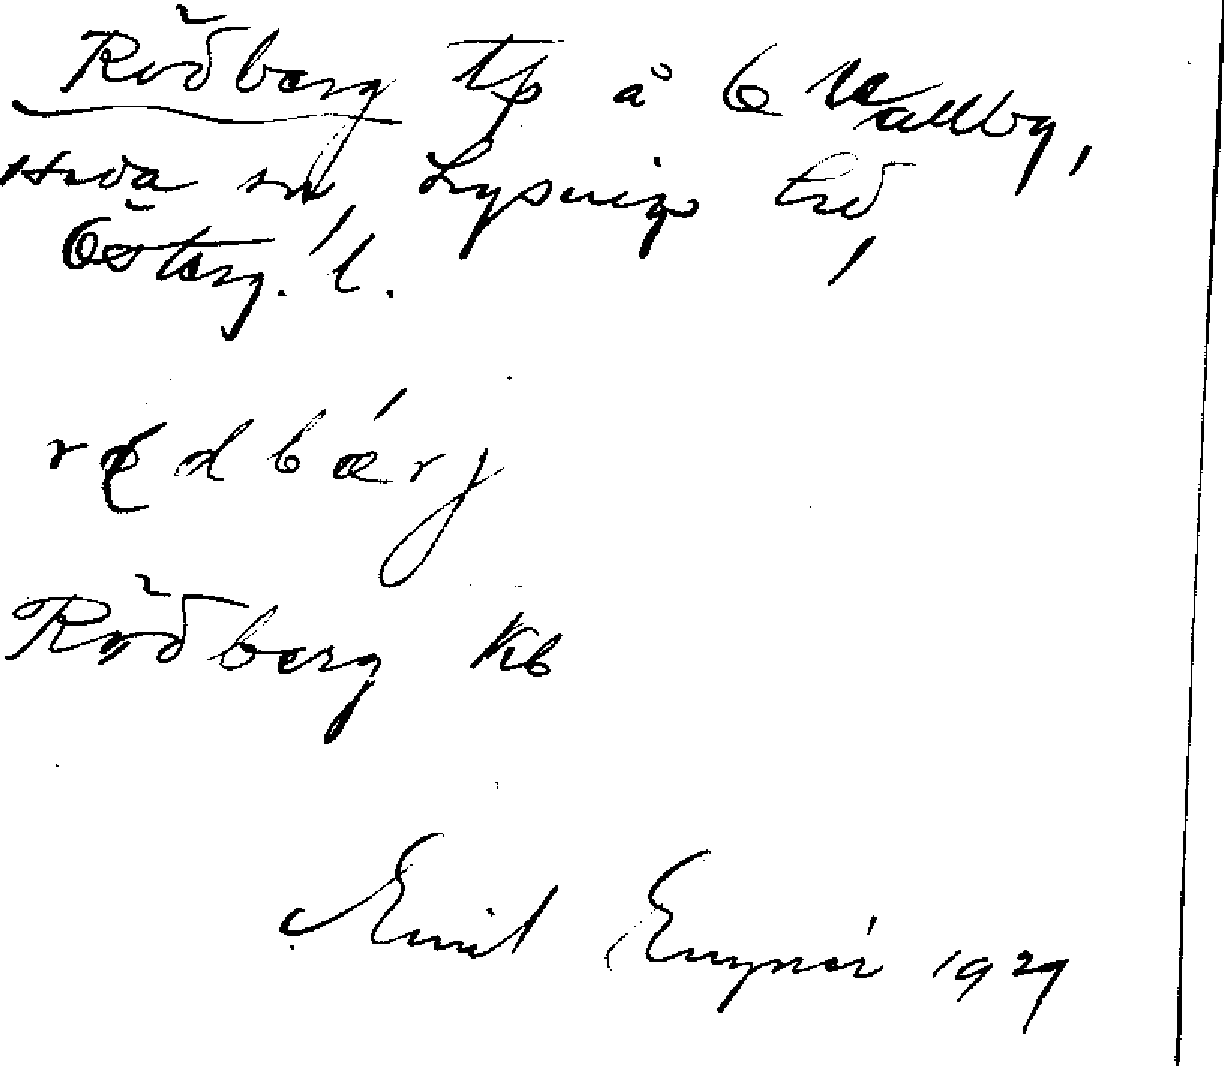 Rödberg tp å Ö Wallby,
Heda sn, Lysings hd,
Österg. l.
rødbǽrj
Rödberg Kb
Emil Engnér 1929